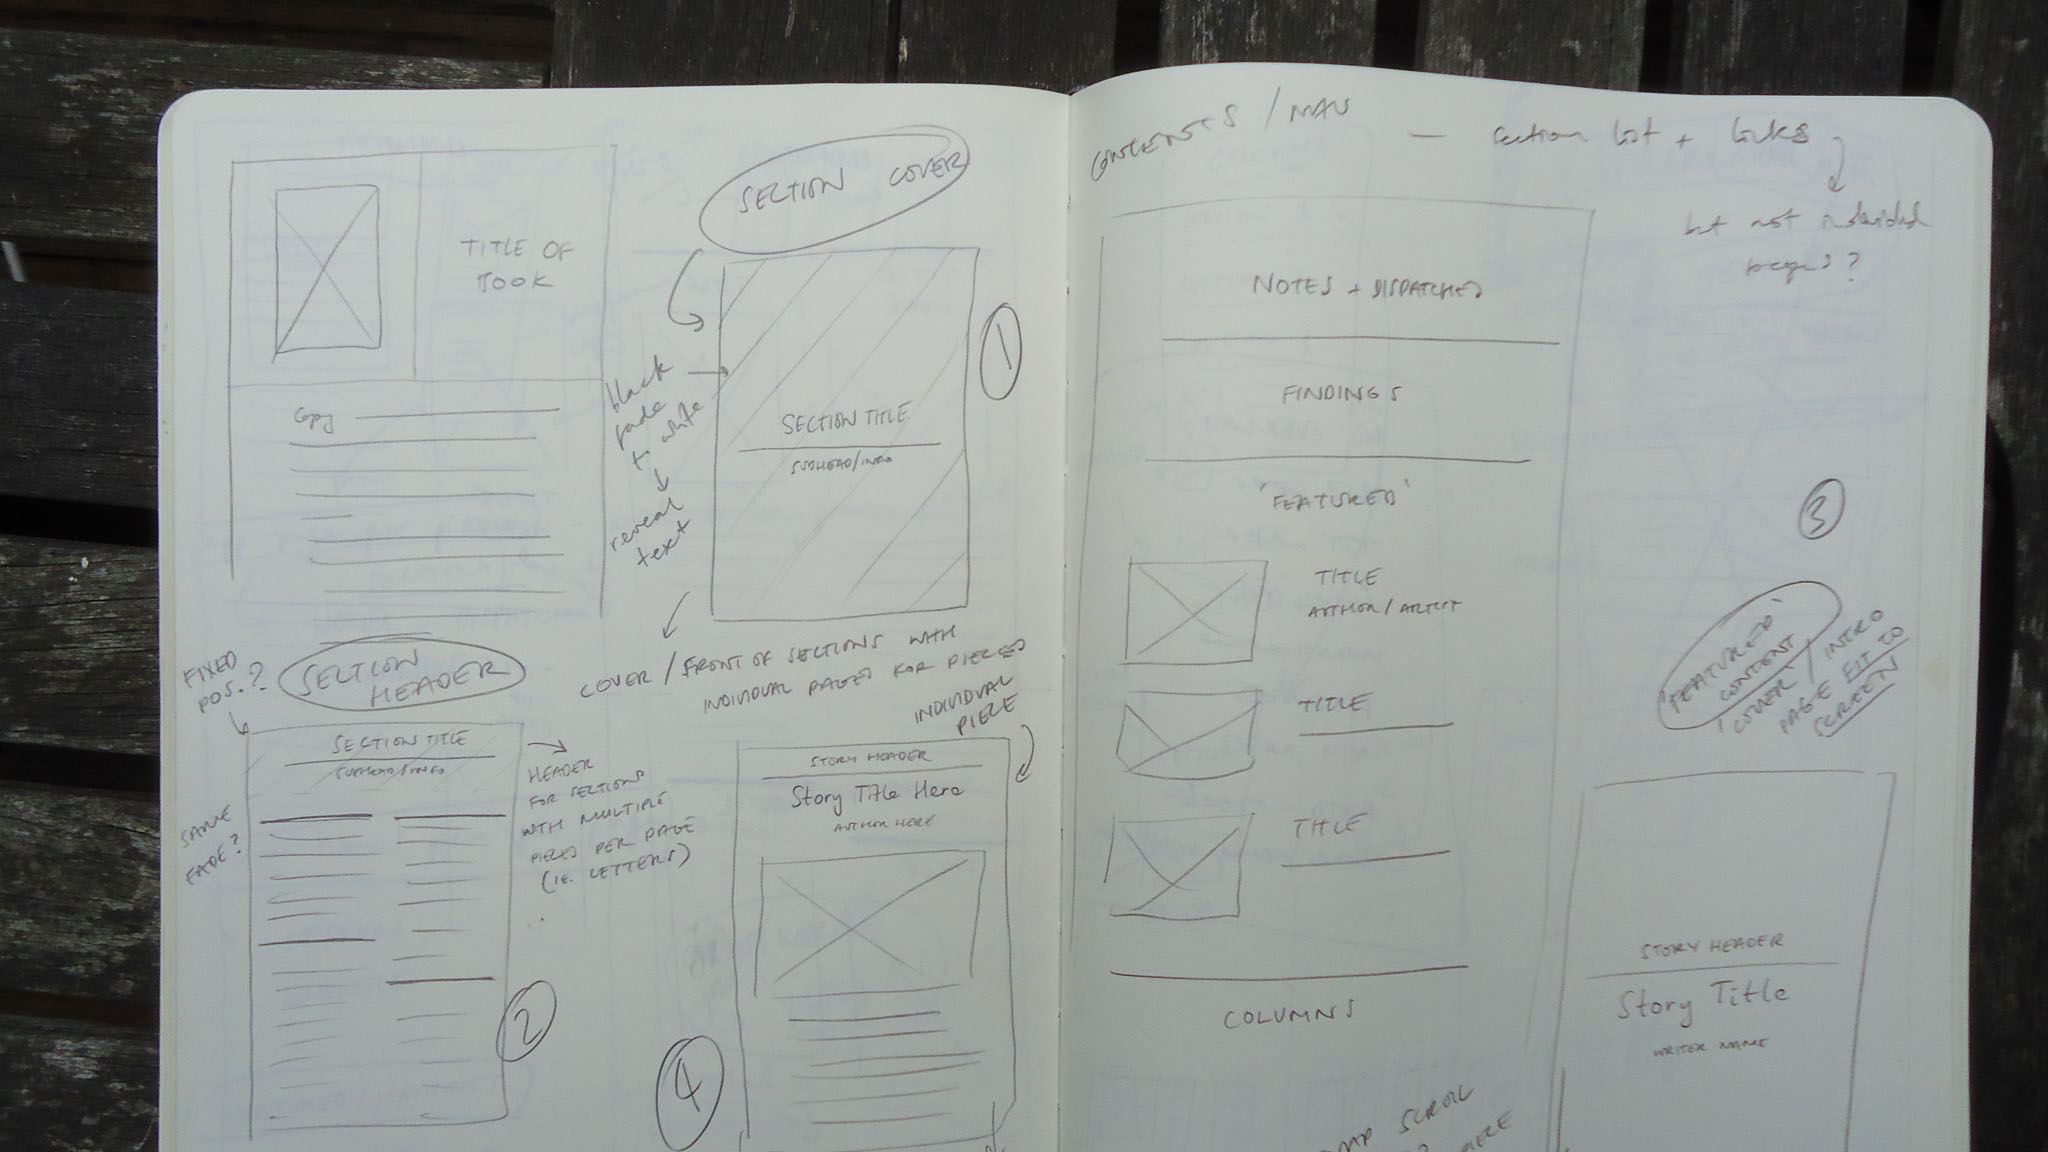 TITLE OF
BOOK
Copy
SECTION COVER
black
fade
to white
reveal
text
SECTION TITLE
SUBHEAD/INFO
1
COVER / FRONT OF SECTIONS WITH
INDIVIDUAL PAGES FOR PIECES
FIXED
POS.?
SECTION
HEADER
SAME
FADE?
SECTION TITLE
SUBHEAD/INFO
HEADER
FOR SECTIONS
WITH MULTIPLE
PIECES PER PAGE
(IE. LETTERS)
2
INDIVIDUAL
PIECE
STORY HEADER
Story Title Here
AUTHOR HERE
4
CONTENTS / NAV — section list + links
but not individual
NOTES + DISPATCHES
FINDINGS
'FEATURED'
TITLE
AUTHOR / ARTIST
TITLE
TITLE
COLUMNS
3
'FEATURED'
CONTENT
'COVER / INTRO
PAGE FIT TO
SCREEN
STORY HEADER
Story Title
WRITER NAME
SCROLL
PIECE